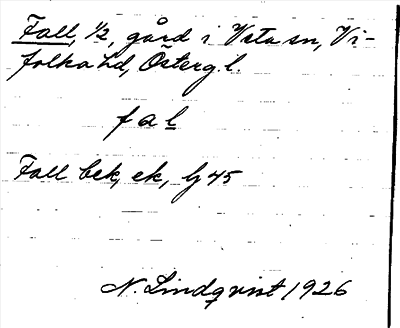 Fall, 1/2, gård i Vsta sn, Vi-
folka hd, Österg.l.
fal
Fall bck, ek, lj 45
N. Lindqvist 1926